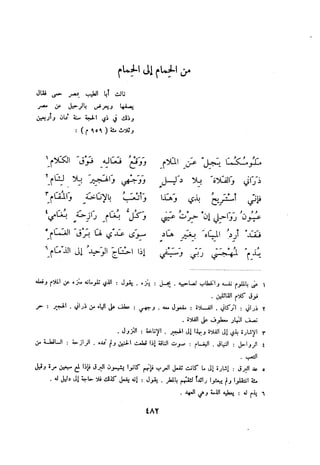 من الحمام إلى الحمام
نالت أبا الطيب بمصر حمى فقال
يصفها ويعرض بالرحيل عن مصر
وذلك في ذي الحجة سنة ثمان وأربعين
وثلاث مئة ( ٩٥٩ م ) :
مَلُومُكُمَا يَجِلُّ عَنِ المَلامِ وَوَقْعُ فَعَالِهِ فَوْقَ الكَلامِ ١
ذَرَاني وَالفَلاةَ بِلا دَليلٍ وَوَجْهي وَالهَجِيرَ بِلا لِثَامِ ٢
فإنّي أسْتَرِيحُ بذي وَهَذا وَأتْعَبُ بالإنَاخَةِ وَالمُقَامِ ٣
عُيُونُ رَوَاحِلي إنْ حِرْتُ عَيْني وَكُلُّ بُغَامِ رَازِحَةٍ بُغَامي ٤
فَقَدْ أرِدُ المِيَاهَ بِغَيرِ هَادٍ سِوَى عَدّي لهَا بَرْقَ الغَمَامِ ٥
يُذِمّ لِمُهْجَتي رَبّي وَسَيْفي إذا احْتَاجَ الوَحيدُ إلى الذّمَامِ ٦
١ عنى بالملوم نفسه والخطاب لصاحبيه . يجل : ينزه . يقول : الذي تلومانه منزه عن الملام وفعله
فوق كلام القائلين .
٢ ذراني : اتركاني . الفلاة : مفعول معه . وجهي : عطف على الياء من ذراني . الهجير : حر
نصف النهار معطوف على الفلاة .
٣ الإشارة بذي إلى الفلاة وبهذا إلى الهجير . الإناخة : النزول .
٤ الرواحل : النياق . البغام : صوت الناقة إذا قطعت الحنين ولم تمده . الرازحة : الساقطة من
التعب .
٥ عد البرق : إشارة إلى ما كانت تفعل العرب فإنهم كانوا يشيمون البرق فإذا لمع سبعين مرة وقيل
مئة انتقلوا ولم يبعثوا رائداً لثقتهم بالمطر . يقول : إنه يفعل كذلك فلا حاجة إلى دليل له .
٦ يذم له : يعطيه الذمة وهي العهد .
٤٨٢